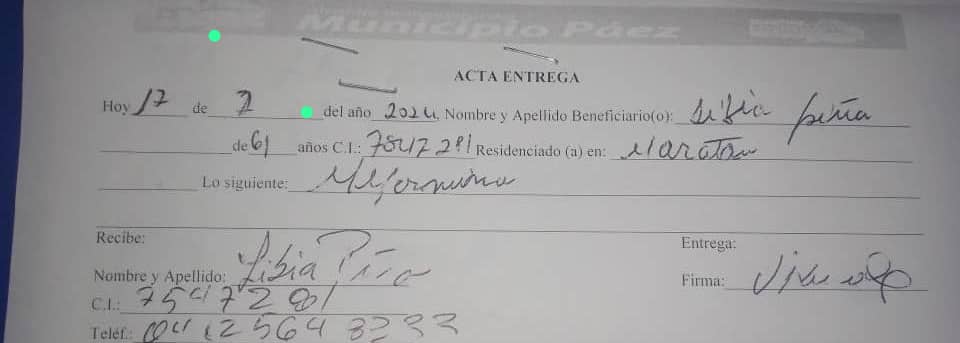 Municipio Páez
ACTA ENTREGA
Hoy 17 de 7 del año 2024 Nombre y Apellido Beneficiario(o): Libia Peña
de 61 años C.I.: 7547281 Residenciado (a) en:
Lo siguiente: Metformina
Recibe:
Entrega:
Nombre y Apellido: Libia Piña
Firma:
C.I.: 7547281
Teléf.: 04125643233